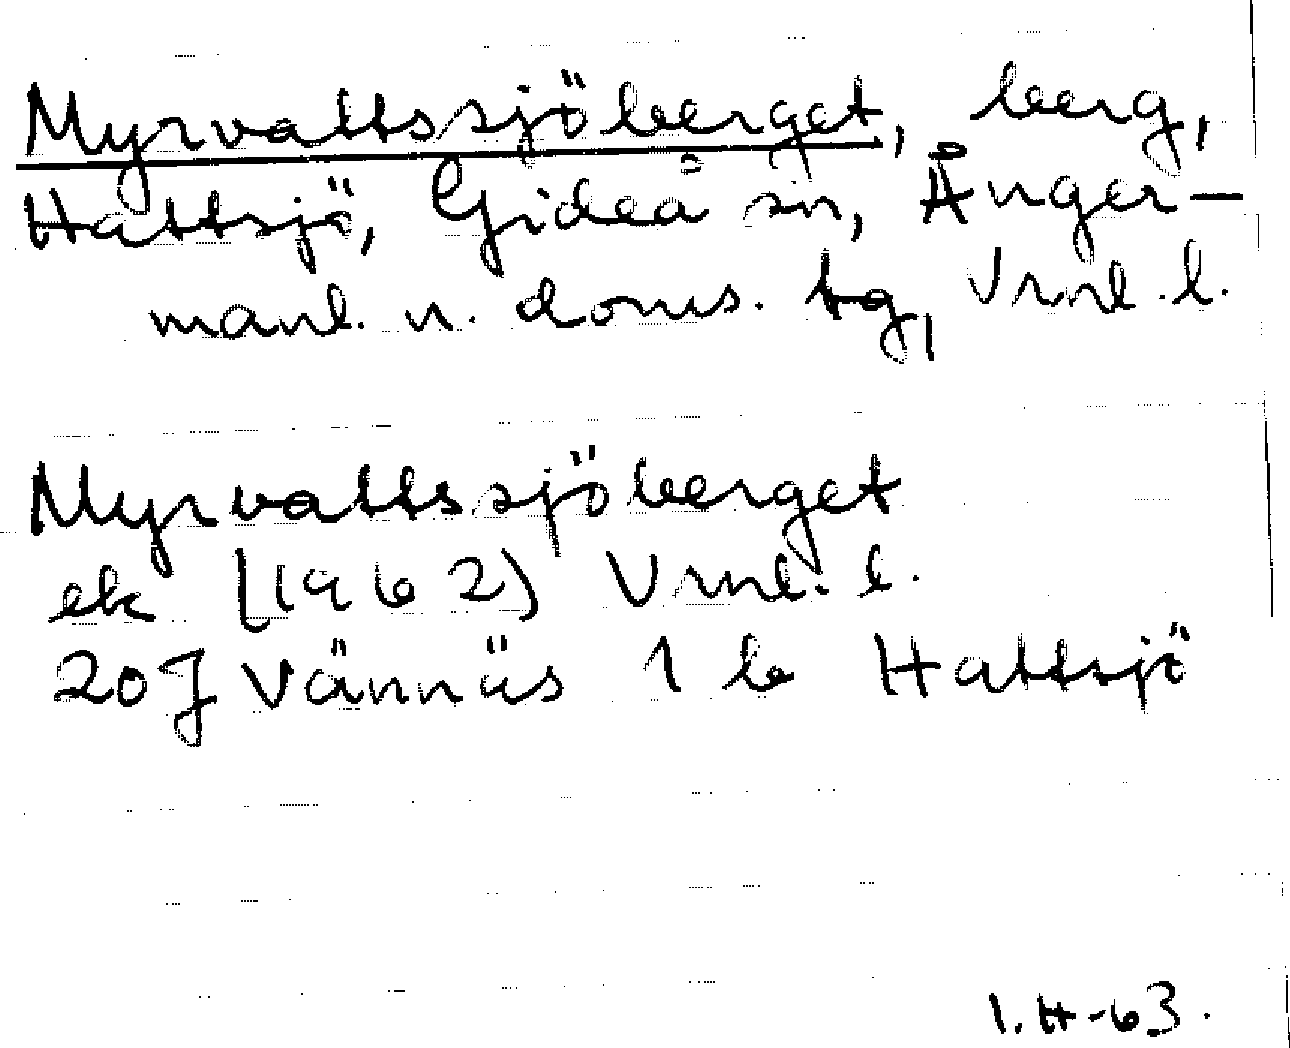 Myrvattssjöberget, berg,
Hattsjö, Gideå sn, Ånger-
manl. n. doms. tg, Vrnl. l.
Myrvattssjöberget
ek (1962) Vrnl. l.
20J Vännäs 1 b Hattsjö
I.H-63.